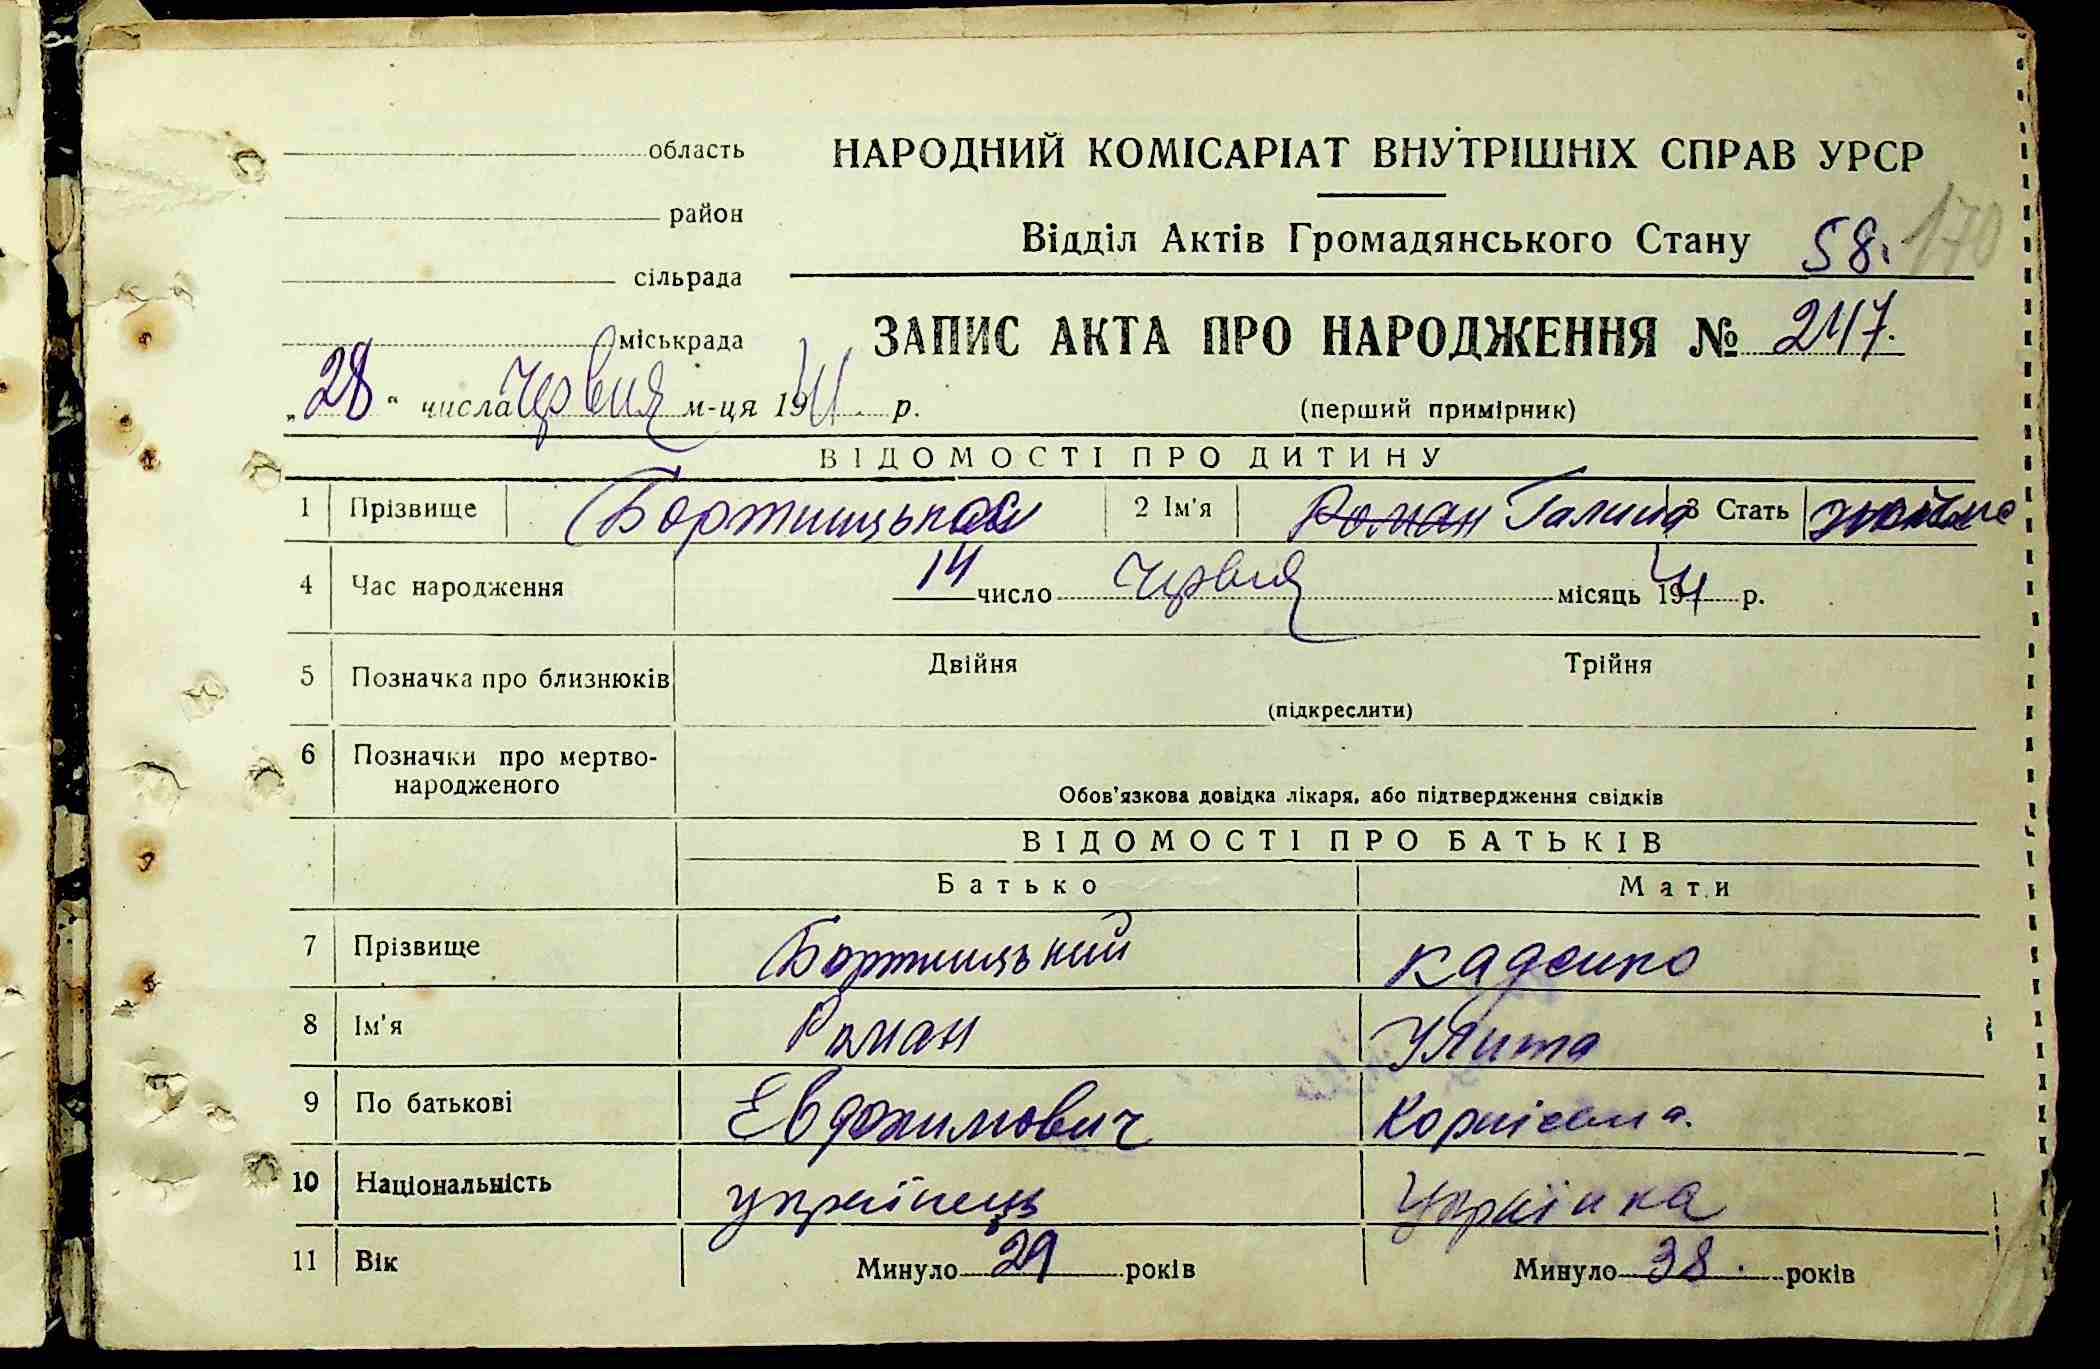 область
НАРОДНИЙ КОМІСАРІАТ ВНУТРІШНІХ СПРАВ УРСР
район
Відділ Актів Громадянського Стану 58. 170
сільрада
міськрада
ЗАПИС АКТА ПРО НАРОДЖЕННЯ № 247.
„28“ числа Червня м-ця 1941. р.
(перший примірник)
ВІДОМОСТІ ПРО ДИТИНУ
1 Прізвище 2 Ім'я Роман Галина 3 Стать
4 Час народження 14 число Червня місяць 1941 р.
5 Позначка про близнюків Двійня Трійня
(підкреслити)
6 Позначки про мертво-
народженого
Обов'язкова довідка лікаря, або підтвердження свідків
ВІДОМОСТІ ПРО БАТЬКІВ
Батько Мати
7 Прізвище
8 Ім'я Роман Улита
9 По батькові Евдокимович
10 Національність українець Українка
11 Вік Минуло 29 років Минуло 38. років